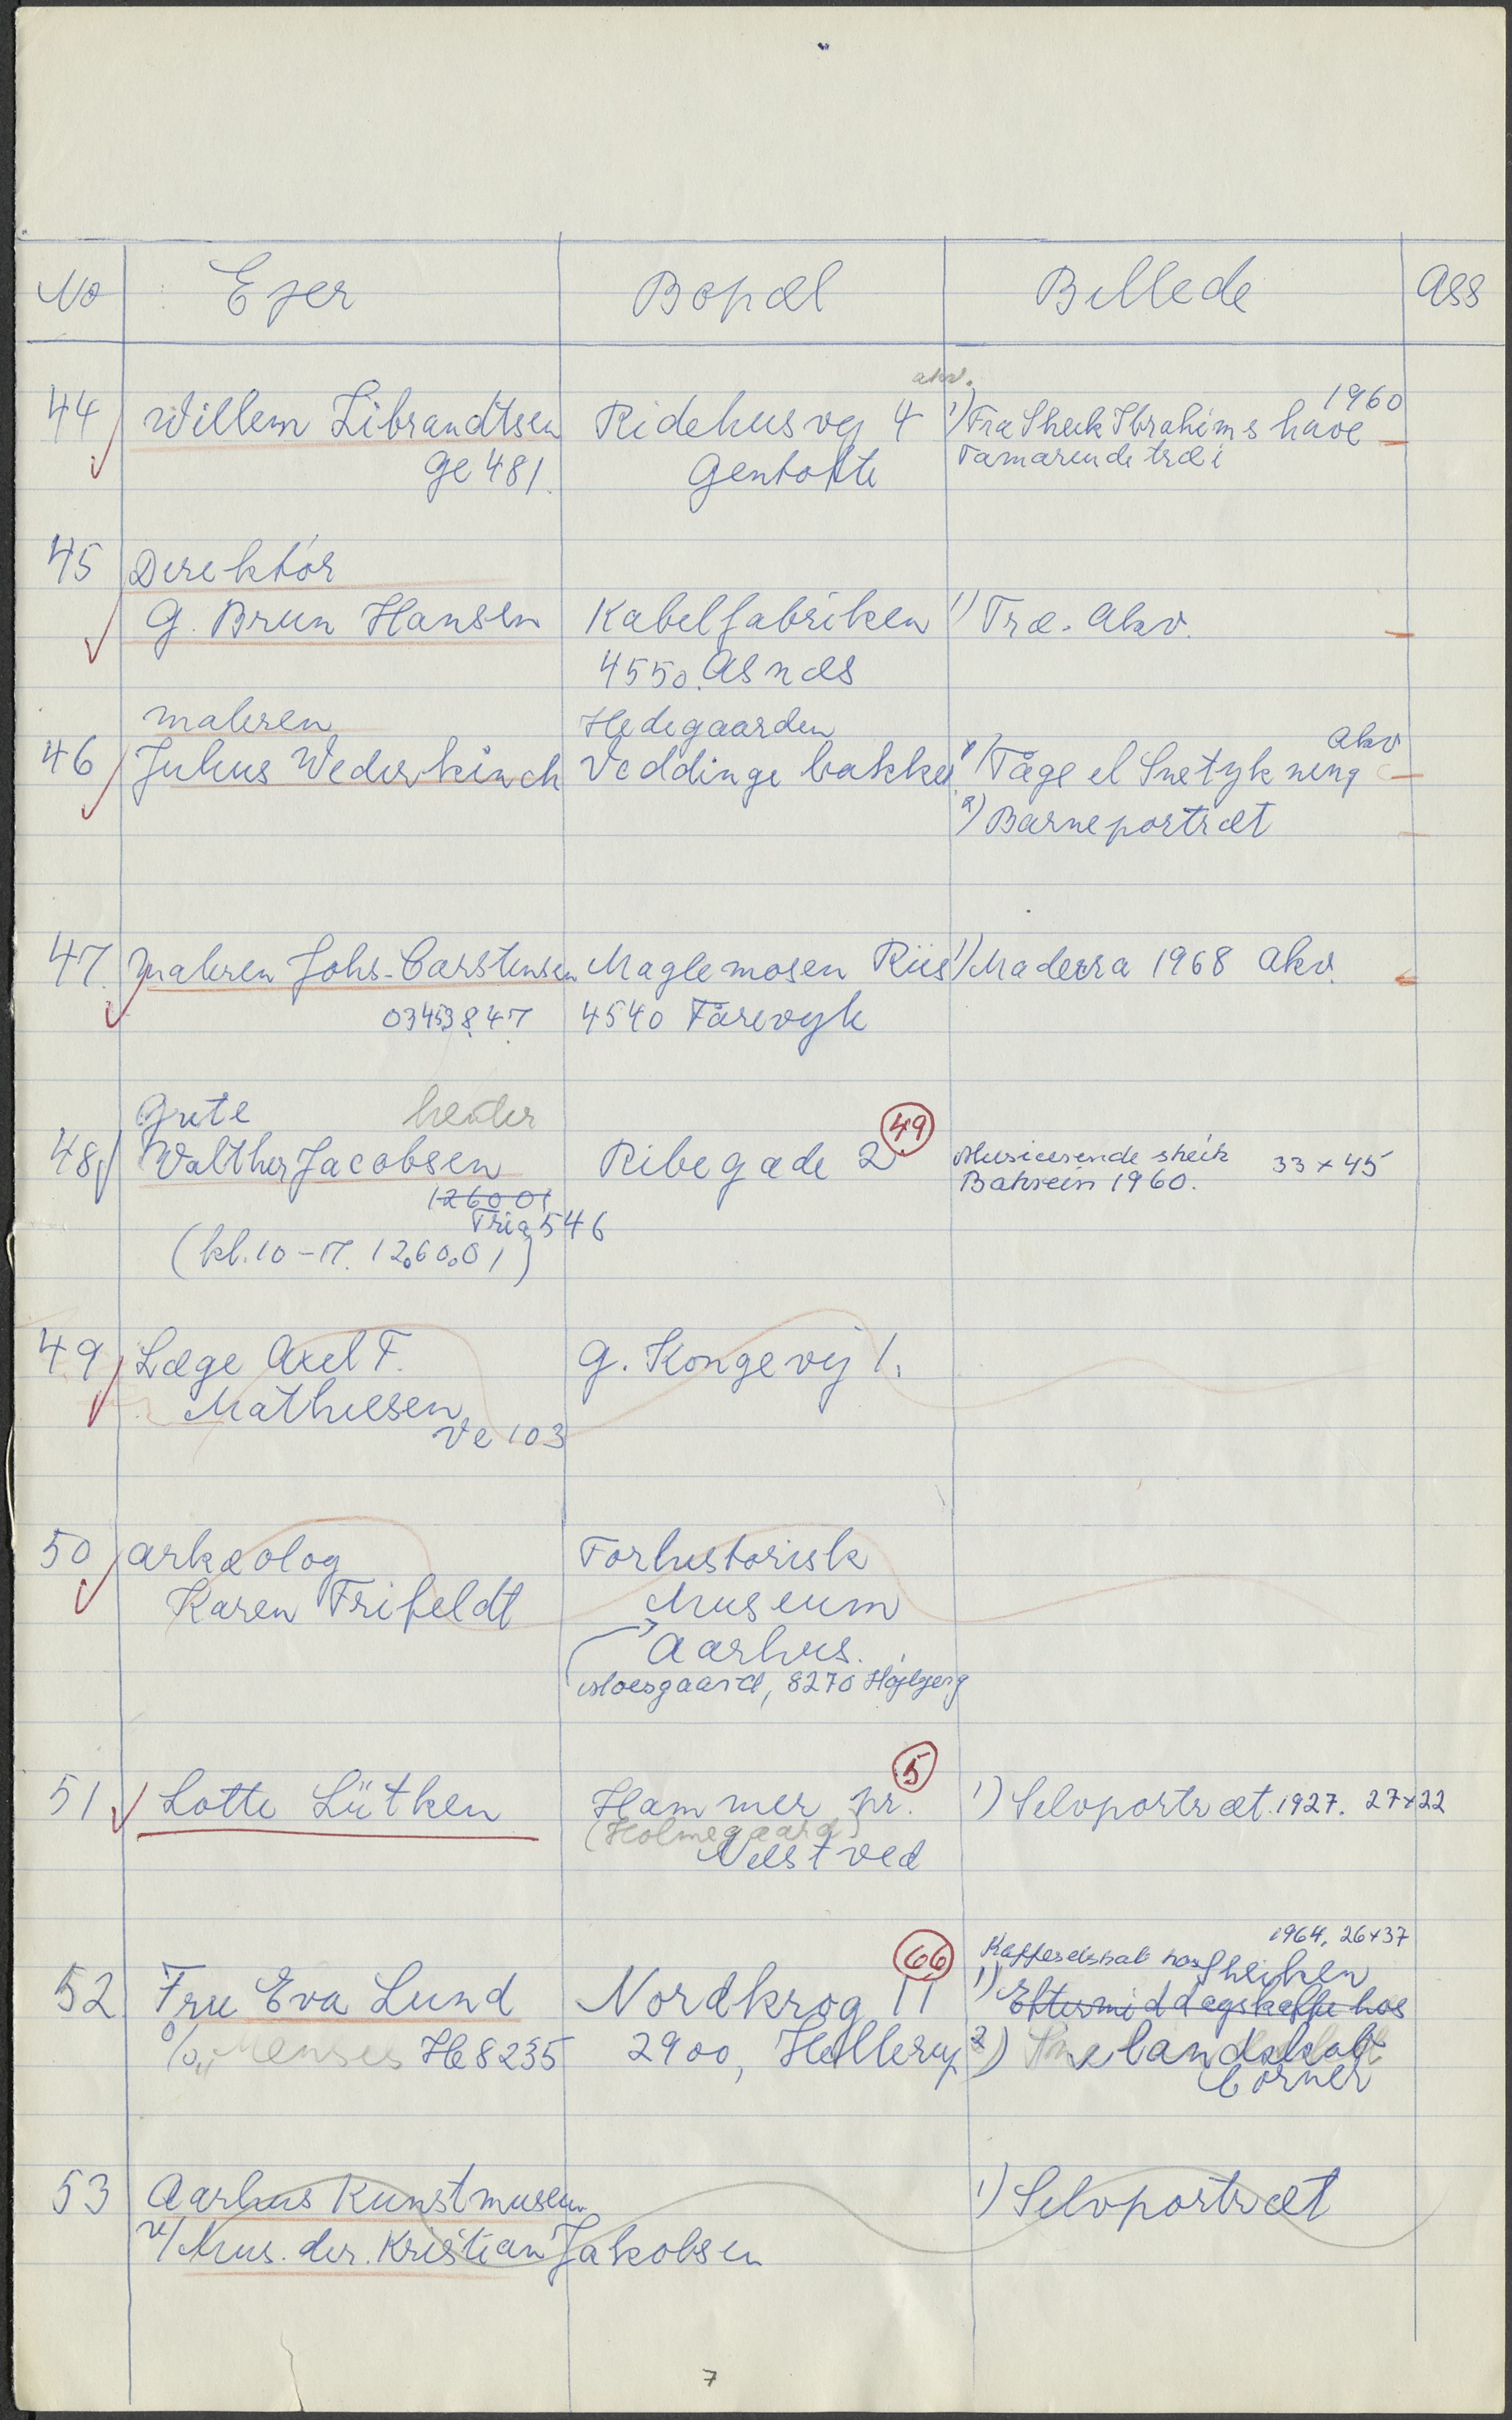 No Ejer Bopæl Billede Ass
akv.
1960
44 Willem Librandtsen Ridehusvej 4 1) Fra Sheik Ibrahims have
Ge 481. Gentofte Tamarinde træ i
45 Direktór
G. Brun Hansen Kabelfabriken 1) Træ. Akv.
4550. Asnæs
maleren Hedegaarden
akv
46 Julius Wederkinch Veddinge bakker 1) Tåge el Snetykning
2) Barneportræt
47. maleren Johs. Carstensen Maglemosen Riis 1) Madeira 1968 Akv.
03453847 4540 Fårevejle
Grete henter
48 Walther Jacobsen Ribegade 2 49 Musicerende sheik 33 x 45
126001 Bahrein 1960.
Tria 546
(kl. 10-17. 126001)
49 Læge Axel F. G. Kongevej 1.
Mathiesen
Ve 103
50 arkæolog Forhistorisk
Karen Frifeldt Museum
Aarhus.
Moesgaard, 8270 Højbjerg
51 Lotte Lütken Hammer pr. 5 1) Selvportræt. 1927. 27x22
(Holmegaard)
Næstved
1964, 26x37
66 Kaffeselskab hos Sheiken
52 Fru Eva Lund Nordkrog 11 1) Eftermiddagskaffe hos
c/o Menses He 8235 2900, Hellerup 2) Snelandskab
Corner
53 Aarhus Kunstmuseum 1) Selvportræt
v/ Mus. dir. Kristian Jakobsen
7